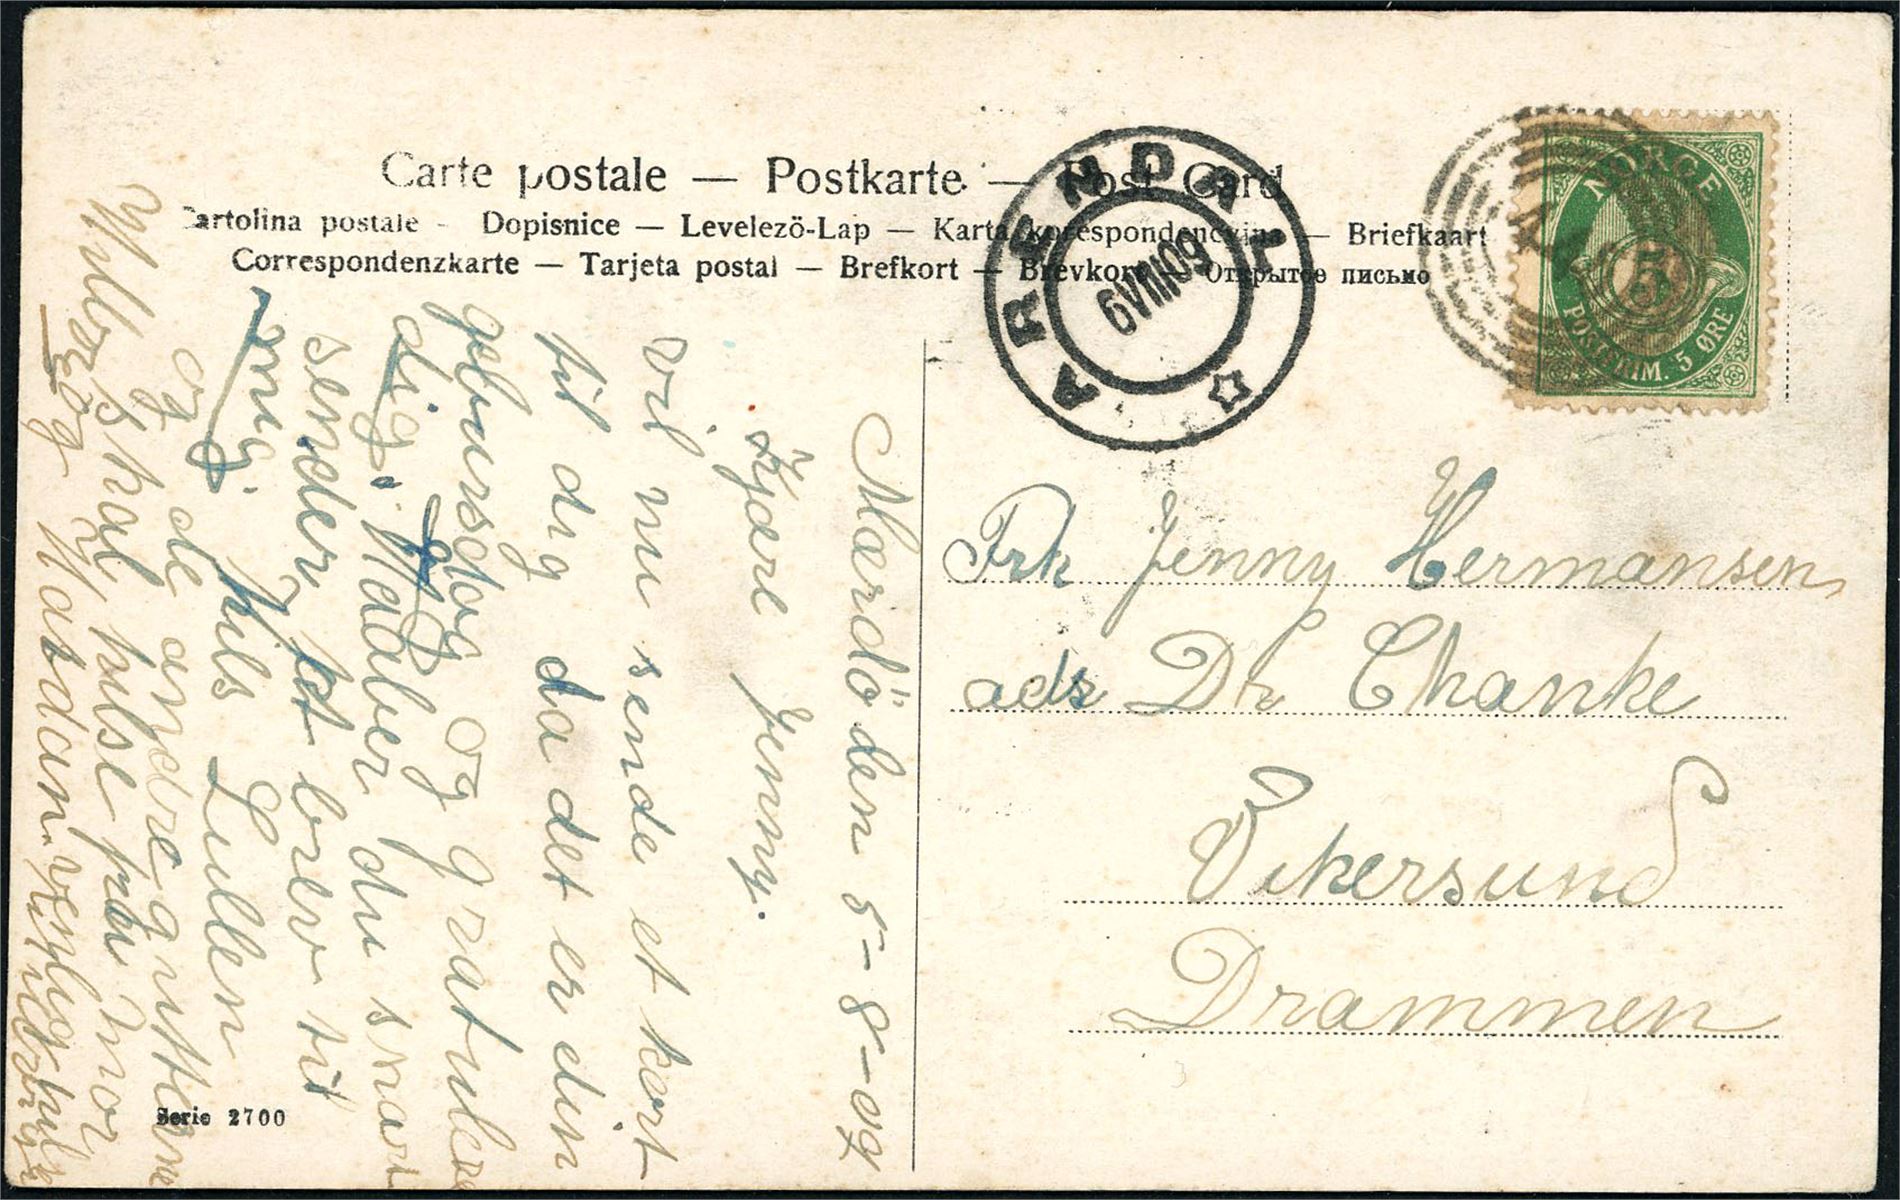 Carte postale — Postkarte — Post Card
Cartolina postale - Dopisnice — Levelezö-Lap — Karta korespondencyjna — Briefkaart
Correspondenzkarte — Tarjeta postal — Brefkort — Brevkort — Открытое письмо
ARENDAL
6 VIII 09
NORGE
5
POSTFRIM. 5 ØRE
Frk Jenny Hermansen
ads Dr Chanke
Vikersund
Drammen
Mærdö den 5-8-09
Kjære Jenny.
Vil nu sende et kort
til dig da det er din
gebursdag og gratulere
dig. Haaber du snart
sender et brev til
mig. Hils Lullen
og de andre
skal hilse fra mor
og Madam
venlig hilsen
Serie 2700